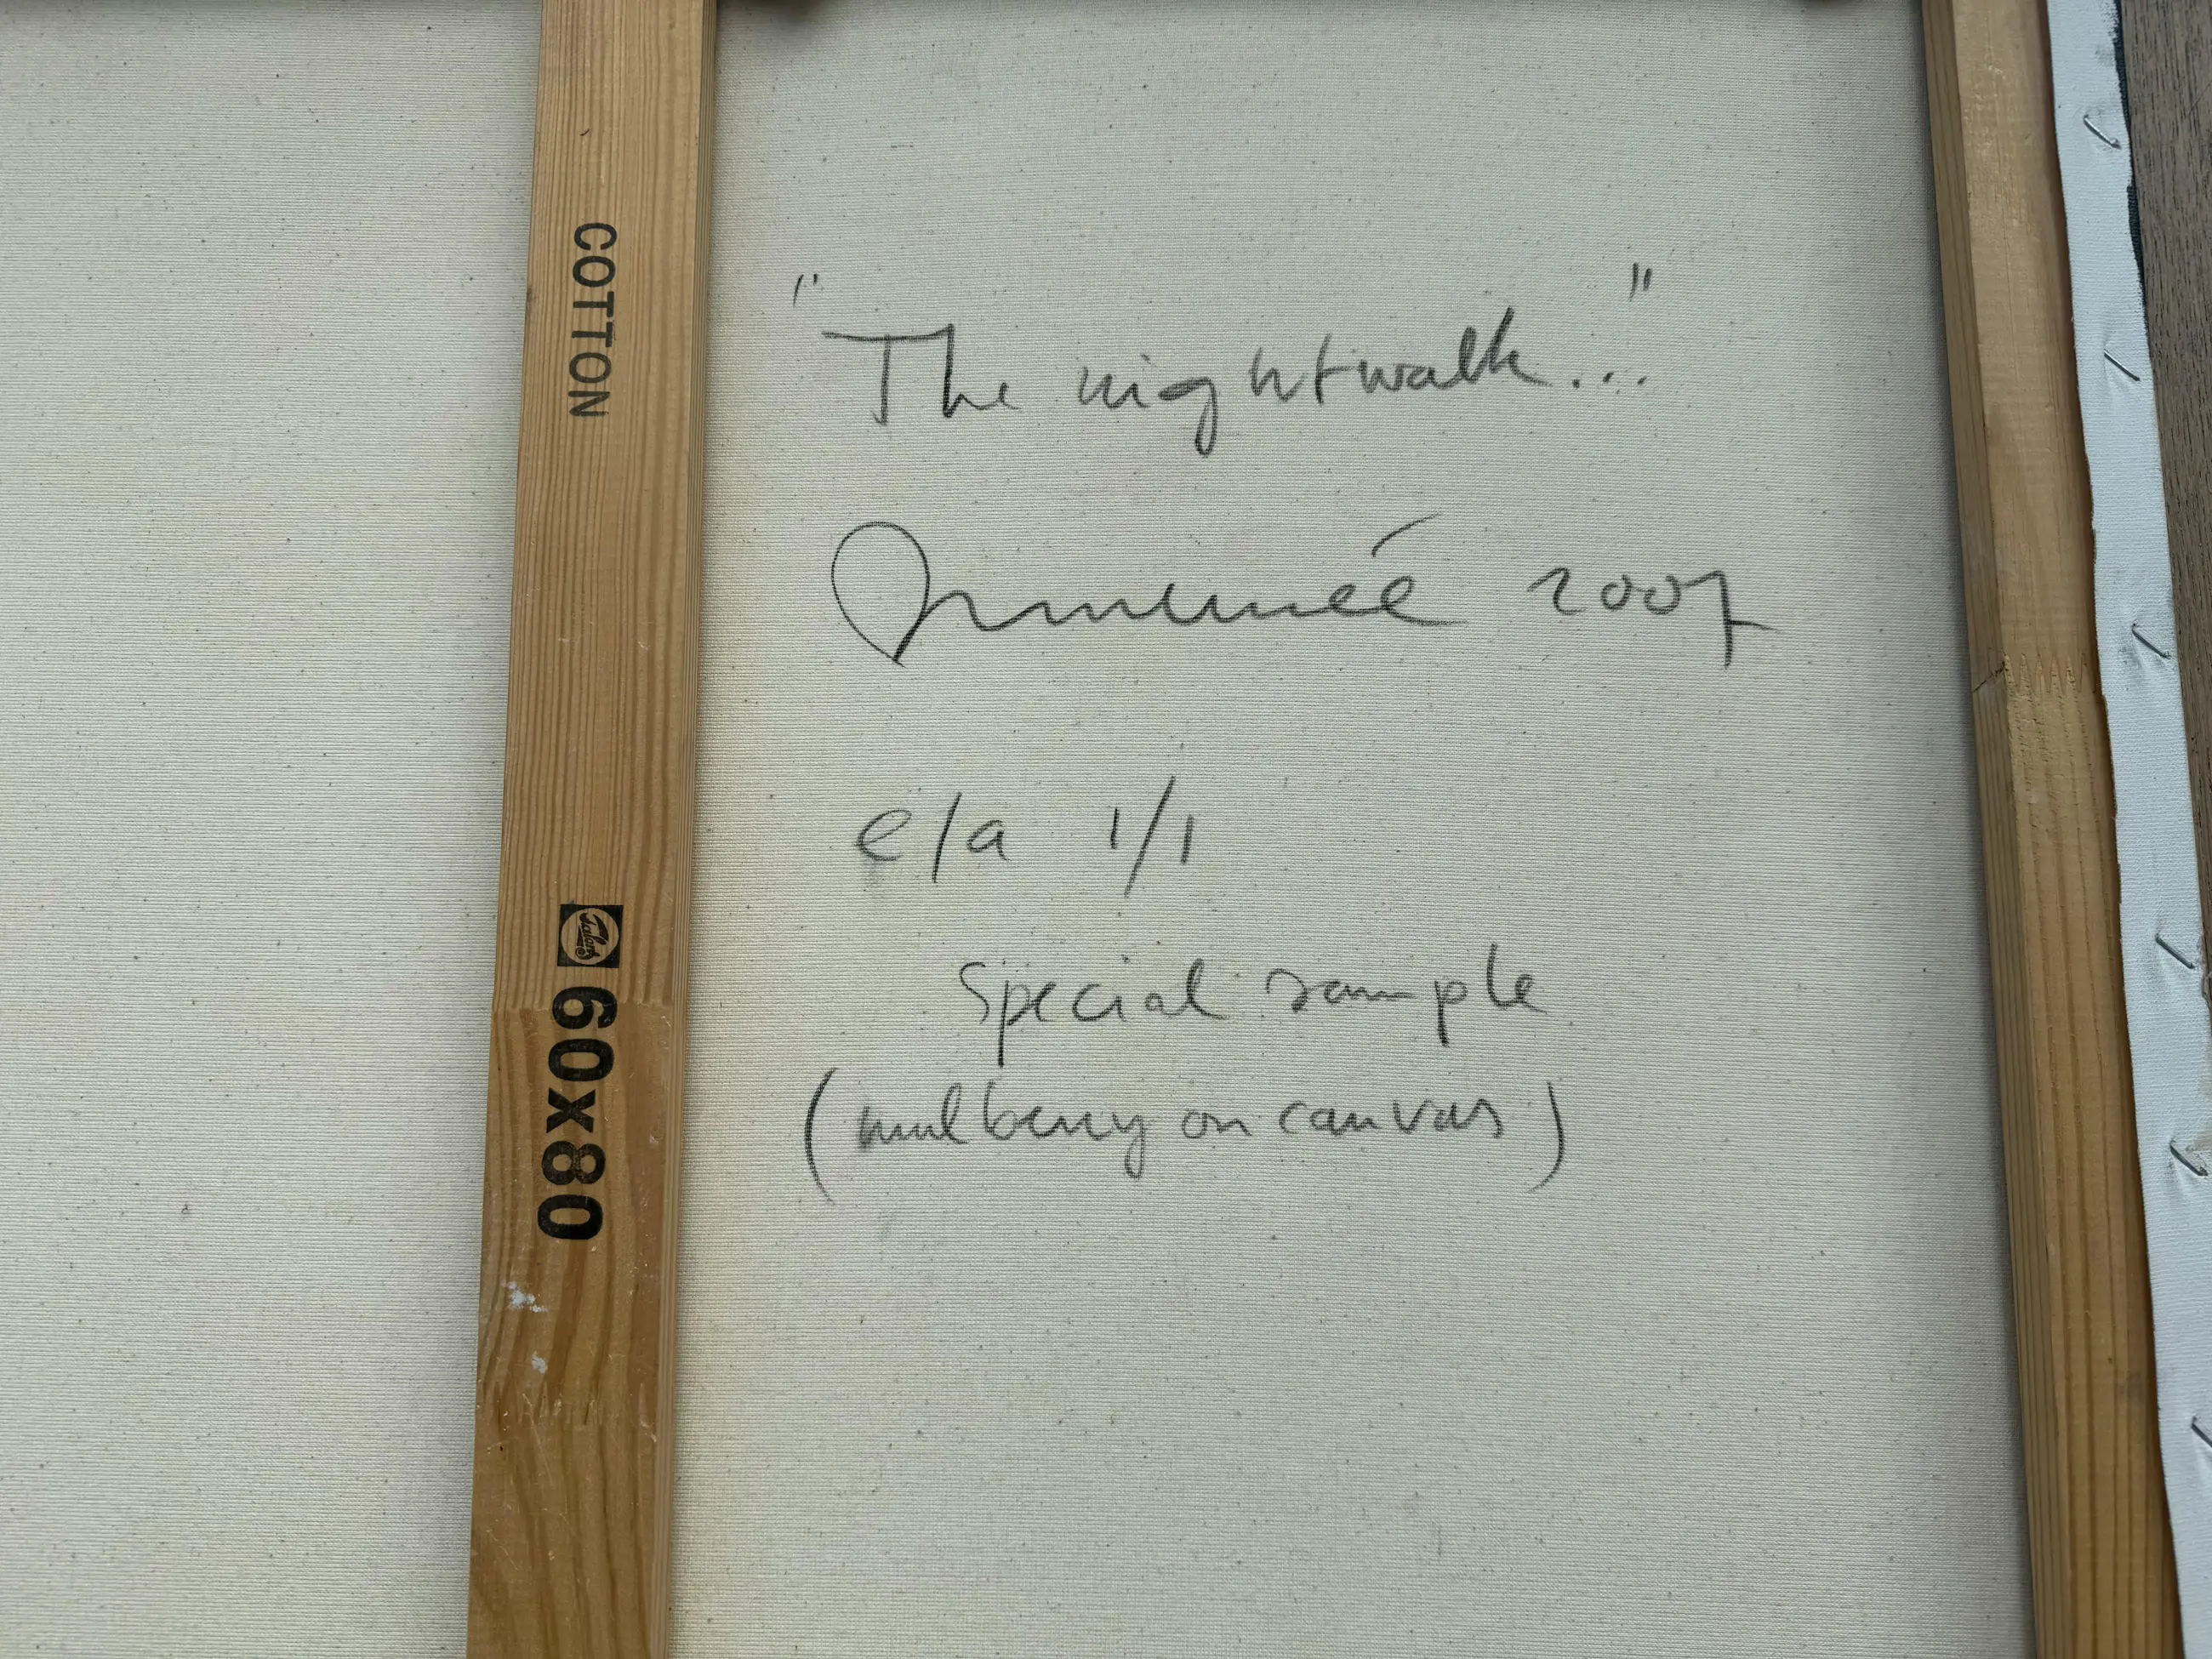 COTTON
Talens
60x80
"The nightwalk..."
2007
e/a 1/1
Special sample
(mulberry on canvas)